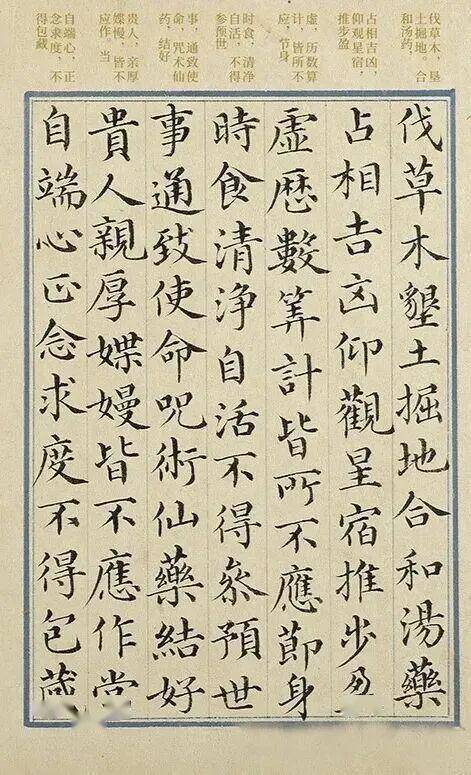 伐草木，垦
土掘地。合
和汤药，
占相吉凶，
仰观星宿，
推步盈
虚，历数算
计，皆所不
应。节身
时食，清净
自活，不得
参预世
事，通致使
命，咒术仙
药，结好
贵人，亲厚
媟慢，皆不
应作。当
自端心，正
念求度，不
得包藏
伐草木墾土掘地合和湯藥
占相吉凶仰觀星宿推步盈
虛歷數筭計皆所不應節身
時食清淨自活不得叅預世
事通致使命呪術仙藥結好
貴人親厚媟嫚皆不應作當
自端心正念求度不得包藏